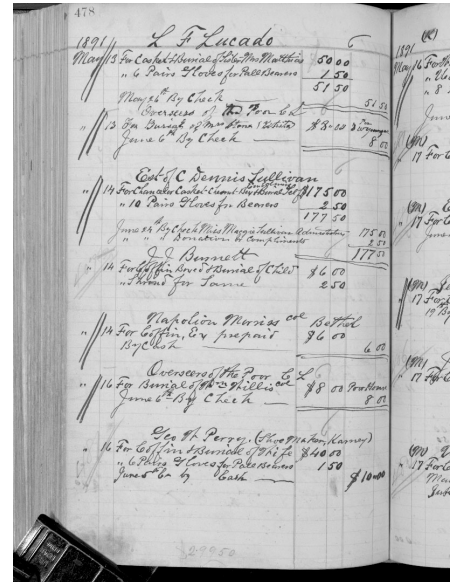 478
1891 L F Lucado
May 13 For Casket & Burial of Sister Mrs Matthias 50 00
" 6 Pairs Gloves for Pall Bearers 1 50
51 50
May 26th By Check 51 50
Overseers of the Poor C L
" 13 For Burial of Mrs White $8.00
June 6th By Check 8 00
Est of C Dennis Sullivan
" 14 For Casket $175 00
" 10 Pairs Gloves for Bearers 2 50
177 50
June 24th By Check Miss Maggie Sullivan 175 00
" " " Donation & Compliments 2 50
177 50
J J Burnett
" 14 For Coffin Box & Burial of Child $6 00
" Shroud for Same 2 50
Napolion Morriss col Bethel
" 14 For Coffin, Ex prepaid $6 00
By Cash 6 00
Overseers of the Poor C L
" 16 For Burial of Willis col $8 00 Poor House
June 6th By Check 8 00
Geo W Perry. (Shoe Maker, Ramey)
" 16 For Coffin & Burial of Wife $40 00
" 6 Pairs Gloves for Pall Bearers 1 50
June 5th By Cash $10.00
299 50
1891
May 16
17 For C
17 For C
June
17 For
19 By
17 For C
17 For C